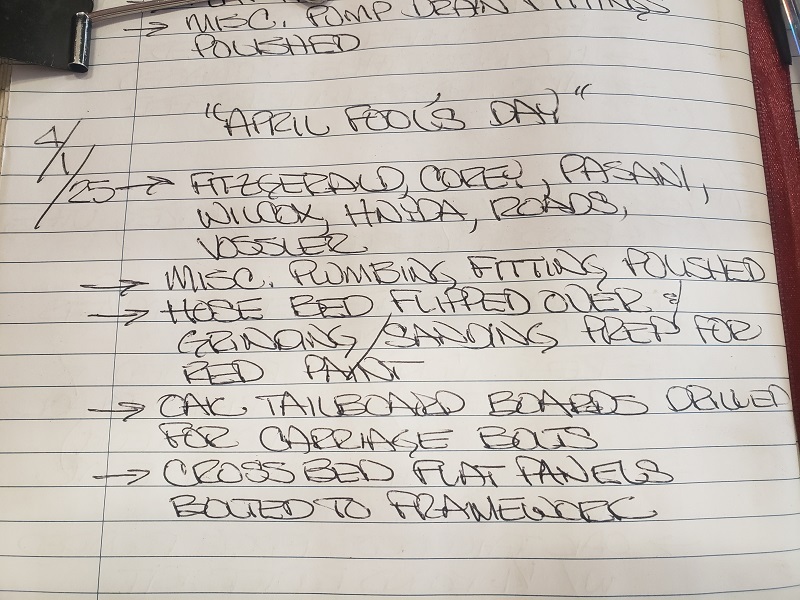 → MISC. PUMP DRAIN FITTINGS
POLISHED
"APRIL FOOL'S DAY"
4/1/25 → FITZGERALD, COREY, PASANI,
WILCOX, HNYDA, ROADS,
VOSSLER
→ MISC. PLUMBING FITTING POLISHED
→ HOSE BED FLIPPED OVER &
GRINDING/SANDING PREP FOR
RED PAINT
→ OAK TAILBOARD BOARDS DRILLED
FOR CARRIAGE BOLTS
→ CROSS BED FLAT PANELS
BOLTED TO FRAMEWORK